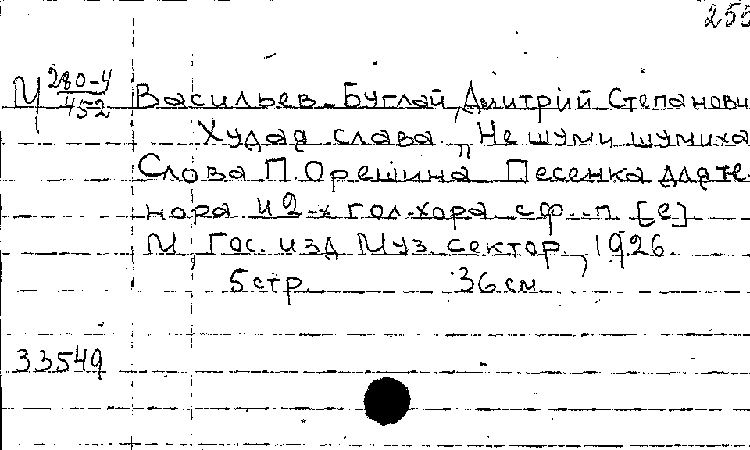 255
М 280-4/452 Васильев-Буглай, Дмитрий Степанови
Худая слава „Не шуми шумиха
Слова П. Орешина Песенка для те-
нора и 2-х гол. хора с ф.-п. [е]
М Гос. изд Муз. сектор, 1926.
5 стр. 36 см
33549